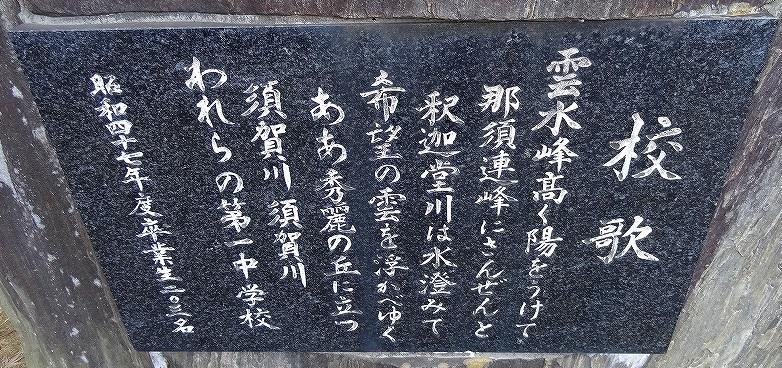 校歌
雲水峰高く陽をうけて
那須連峰にさんぜんと
釈迦堂川は水澄みて
希望の雲を浮かべゆく
ああ秀麗の丘に立つ
須賀川 須賀川
われらの第一中学校
昭和四十七年度卒業生二〇三名